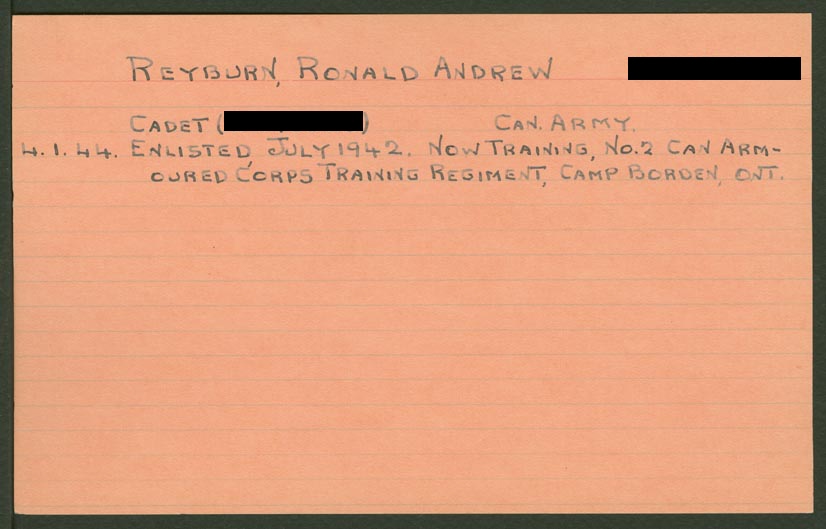 REYBURN, RONALD ANDREW
CADET ( ) CAN. ARMY.
4.1.44. ENLISTED, JULY 1942. NOW TRAINING, NO.2 CAN ARM-
OURED CORPS TRAINING REGIMENT, CAMP BORDEN, ONT.